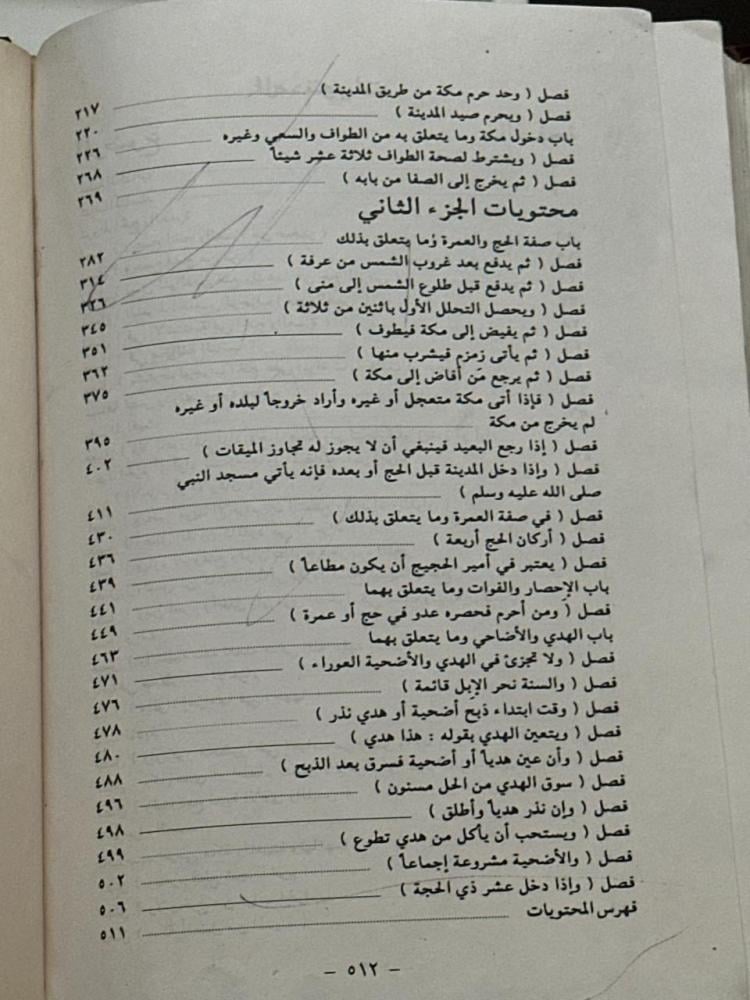 فصل ( وحد حرم مكة من طريق المدينة ) ٢١٧
فصل ( ويحرم صيد المدينة ) ٢٢٠
باب دخول مكة وما يتعلق به من الطواف والسعي وغيره ٢٢٦
فصل ( ويشترط لصحة الطواف ثلاثة عشر شيئاً ٢٦٨
فصل ( ثم يخرج إلى الصفا من بابه ) ٢٦٩
محتويات الجزء الثاني
باب صفة الحج والعمرة وما يتعلق بذلك ٢٨٢
فصل ( ثم يدفع بعد غروب الشمس من عرفة ) ٣١٤
فصل ( ثم يدفع قبل طلوع الشمس إلى منى ) ٣٢٦
فصل ( ويحصل التحلل الأول باثنين من ثلاثة ) ٣٤٥
فصل ( ثم يفيض إلى مكة فيطوف ) ٣٥١
فصل ( ثم يأتى زمزم فيشرب منها ) ٣٦٢
فصل ( ثم يرجع من أفاض إلى مكة ) ٣٧٥
فصل ( فإذا أتى مكة متعجل أو غيره وأراد خروجاً لبلده أو غيره
لم يخرج من مكة ٣٩٥
فصل ( إذا رجع البعيد فينبغي أن لا يجوز له تجاوز الميقات ) ٤٠٢
فصل ( وإذا دخل المدينة قبل الحج أو بعده فإنه يأتي مسجد النبي
صلى الله عليه وسلم ) ٤١١
فصل ( في صفة العمرة وما يتعلق بذلك ) ٤٣٠
فصل ( أركان الحج أربعة ) ٤٣٦
فصل ( يعتبر في أمير الحجيج أن يكون مطاعاً ) ٤٣٩
باب الإحصار والفوات وما يتعلق بهما ٤٤١
فصل ( ومن أحرم فحصره عدو في حج أو عمرة ) ٤٤٩
باب الهدي والأضاحي وما يتعلق بهما ٤٦٣
فصل ( ولا تجزئ في الهدي والأضحية العوراء ) ٤٧١
فصل ( والسنة نحر الإبل قائمة ) ٤٧٦
فصل ( وقت ابتداء ذبح أضحية أو هدي نذر ) ٤٧٨
فصل ( ويتعين الهدي بقوله : هذا هدي ) ٤٨٠
فصل ( وأن عين هدياً أو أضحية فسرق بعد الذبح ) ٤٨٨
فصل ( سوق الهدي من الحل مسنون ) ٤٩٦
فصل ( وإن نذر هدياً وأطلق ) ٤٩٨
فصل ( ويستحب أن يأكل من هدي تطوع ) ٤٩٩
فصل ( والأضحية مشروعة إجماعاً ) ٥٠٢
فصل ( وإذا دخل عشر ذي الحجة ) ٥٠٦
فهرس المحتويات ٥١١
– ٥١٢ –